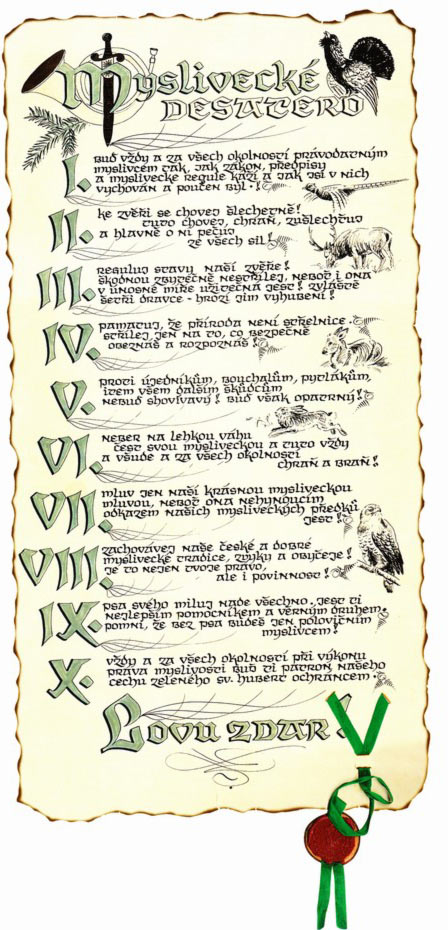 Myslivecké
DESATERO
I.
Buď vždy a za všech okolností právodatným
myslivcem tak, jak zákon, předpisy
a myslivecké regule káží a jak jsi v nich
vychován a poučen byl.!
II.
Ke zvěři se chovej šlechetně!
Tuto chovej, chraň, zušlechťuj
a hlavně o ni pečuj
ze všech sil!
III.
Reguluj stavy naší zvěře!
Škodnou zbytečně nestřílej, neboť i ona
v únosné míře užitečná jest! Zvláště
šetři dravce - hrozí jim vyhubení!
IV.
Pamatuj, že příroda není střelnice.
Střílej jen na to, co bezpečně
obeznáš a rozpoznáš!
V.
Proti újedníkům, bouchalům, pytlákům,
item všem dalším škůdcům
nebuď shovívavý! Buď však opatrný!
VI.
Neber na lehkou váhu
čest svou mysliveckou a tuto vždy
a všude a za všech okolností
chraň a braň!
VII.
Mluv jen naší krásnou mysliveckou
mluvou, neboť ona nehynoucím
odkazem našich mysliveckých předků
jest!
VIII.
Zachovávej naše české a dobré
myslivecké tradice, zvyky a obyčeje!
Je to nejen tvoje právo,
ale i povinnost!
IX.
Psa svého miluj nade všechno. Jest ti
nejlepším pomocníkem a věrným druhem.
Pomni, že bez psa budeš jen polovičním
myslivcem!
X.
Vždy a za všech okolností při výkonu
práva myslivosti buď ti patron našeho
cechu zeleného sv. Hubert ochráncem.
Lovu zdar!